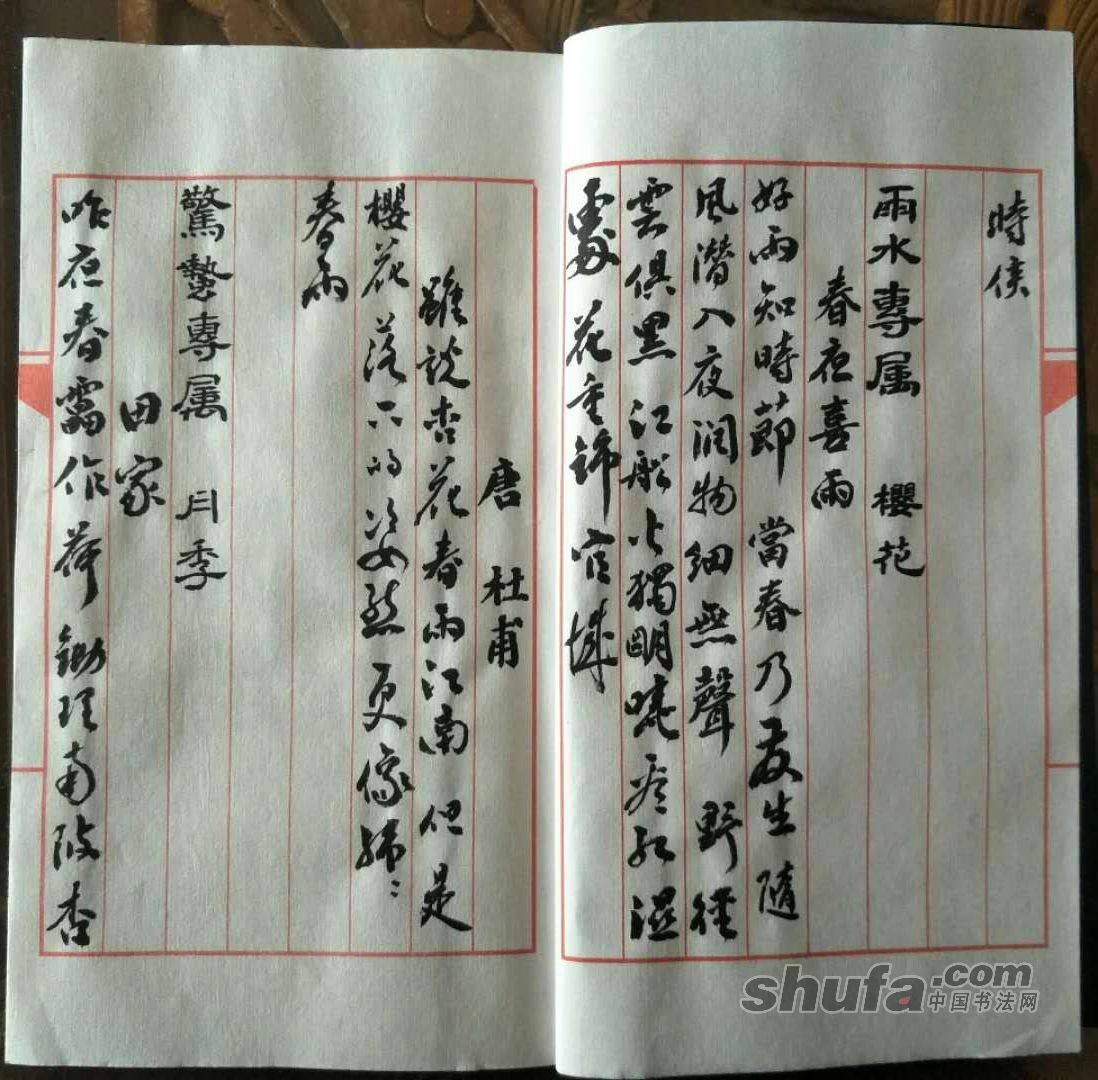 時侯
雨水專属 櫻花
春夜喜雨
好雨知時節 當春乃發生 隨
風潜入夜润物细無聲 野徑
雲俱黑 江船火獨明曉看紅濕
處 花重錦官城
唐 杜甫
雖说杏花春雨江南 但是
櫻花落下的姿态更像绵〻
春雨
驚蟄專属 月季
田家
昨夜春雷作荷鋤理南陂杏
shufa.com
中国书法网